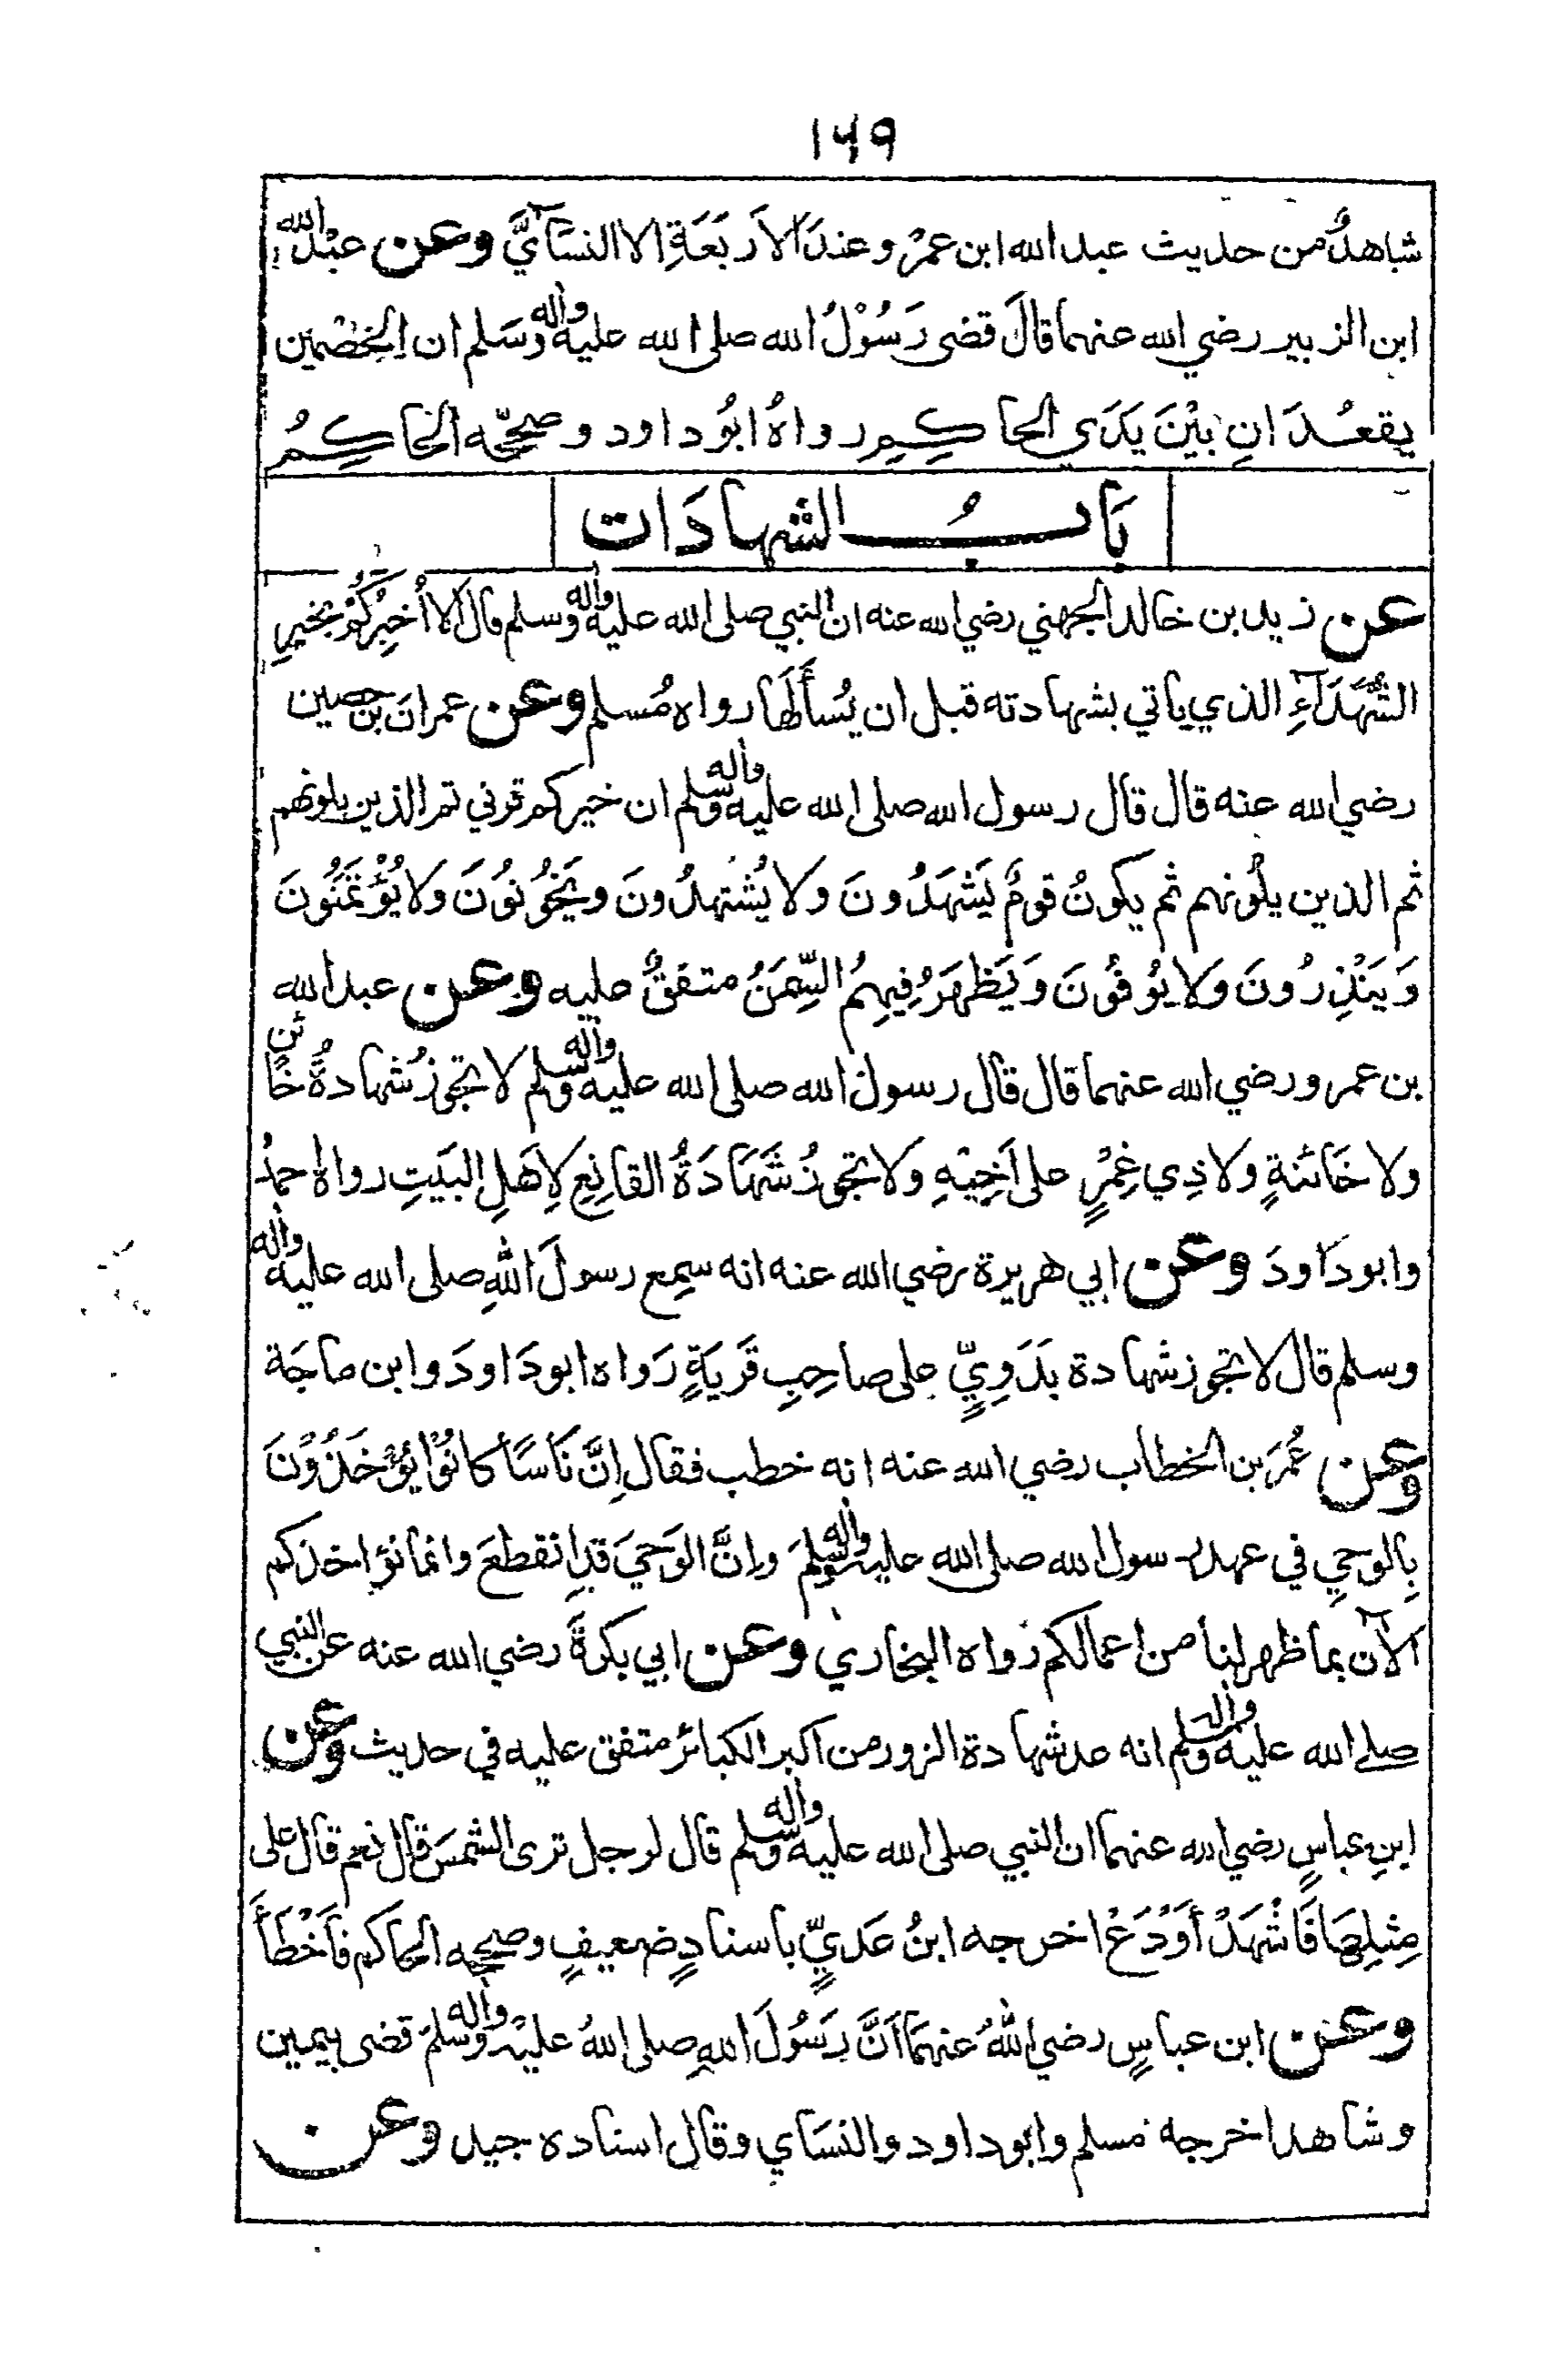 ١٦٩
شاهدٌ من حديث عبد الله ابن عمرْ وعندَ الاَربَعَةِ الا النسَآيَّ وعن عبْدِ الله
ابن الزبير رضي الله عنهما قالَ قضى رَسُوْلُ الله صلى الله عليه واله وَسَلم ان الخِصْمَين
يقعُدَانِ بيْنَ يَدَي الحاكِمِ رواهُ ابوُ داود وصحّحه الحَاكِمُ
بَابُ الشهادَات
عن زيد بن خالد الجهني رضي الله عنه ان النبي صلى الله عليه واله وسلم قال اَلا أُخبِرُكُمْ بخيرِ
الشُّهَدَآءِ الذي ياتي بشهادته قبل ان يُسأَلَها رواه مُسلم وعن عمرانَ بن حصين
رضي الله عنه قال قال رسول الله صلى الله عليه واله وسلم ان خيركم قرني ثم الذين يلونهم
ثم الذين يلُونهم ثم يكونُ قومٌ يَشهَدُونَ ولا يُشْتهدُونَ ويَخُونوُنَ ولا يُؤْتمَنُونَ
وَيَنْذِرُونَ وَلا يُوفُونَ وَيَظهَرُ فِيهِمُ السِّمَنُ متفقٌ عليه وعن عبد الله
بن عمرو رضي الله عنهما قال قال رسول الله صلى الله عليه واله وسلم لا تجوزُ شهادةُ خَائن
ولا خَائنةٍ ولا ذِي غِمْرٍ على اَخِيْهِ وَلا تجوزُ شَهَادَةُ القانِعِ لِاَهَلِ البَيَتِ رواهُ احمدُ
وابو دَاودَ وعن ابي هريرة رضي الله عنه انه سمِع رسولَ اللهِ صلى الله عليه واله
وسلم قال لا تجوز شهادة بَدَوِيٍّ على صاحِبِ قَريَةٍ رَواه ابو دَاودَ وابن ماجَة
وعن عُمَرَ بن الخطاب رضي الله عنه انه خطب فقال اِنَّ نَاسًا كانُوْا يُؤْخَذُوْنَ
بِالوحيِ في عهد رسول الله صلى الله عليه واله وسلمَ واِنَّ الوَحيَ قدِ انقطعَ وانما نؤاخذكم
الآن بما ظهر لنا من اعمالكم رَواه البخاري وعن ابي بكرةَ رضي الله عنه عن النبي
صلى الله عليه واله وسلم انه عد شهادة الزور من اكبر الكبائر متفق عليه في حديث وعن
ابنِ عباسٍ رضي الله عنهما ان النبي صلى الله عليه واله وسلم قال لرجل ترى الشمسَ قال نعم قال على
مِثلِهَا فَاشْهَدْ أَوْدَعْ اخرجه ابنُ عَديٍّ باسنادٍ ضعيفٍ وصححه الحاكم فأَخْطَأَ
وعن ابن عباسٍ رضي اللهُ عنهمَا اَنَّ رَسُولَ اللهِ صلى اللهُ عليْه واله وسلمَ قضى بيمين
وشاهد اخرجه مسلم وابو داود والنسَاي وقال اسناده جيد وعن